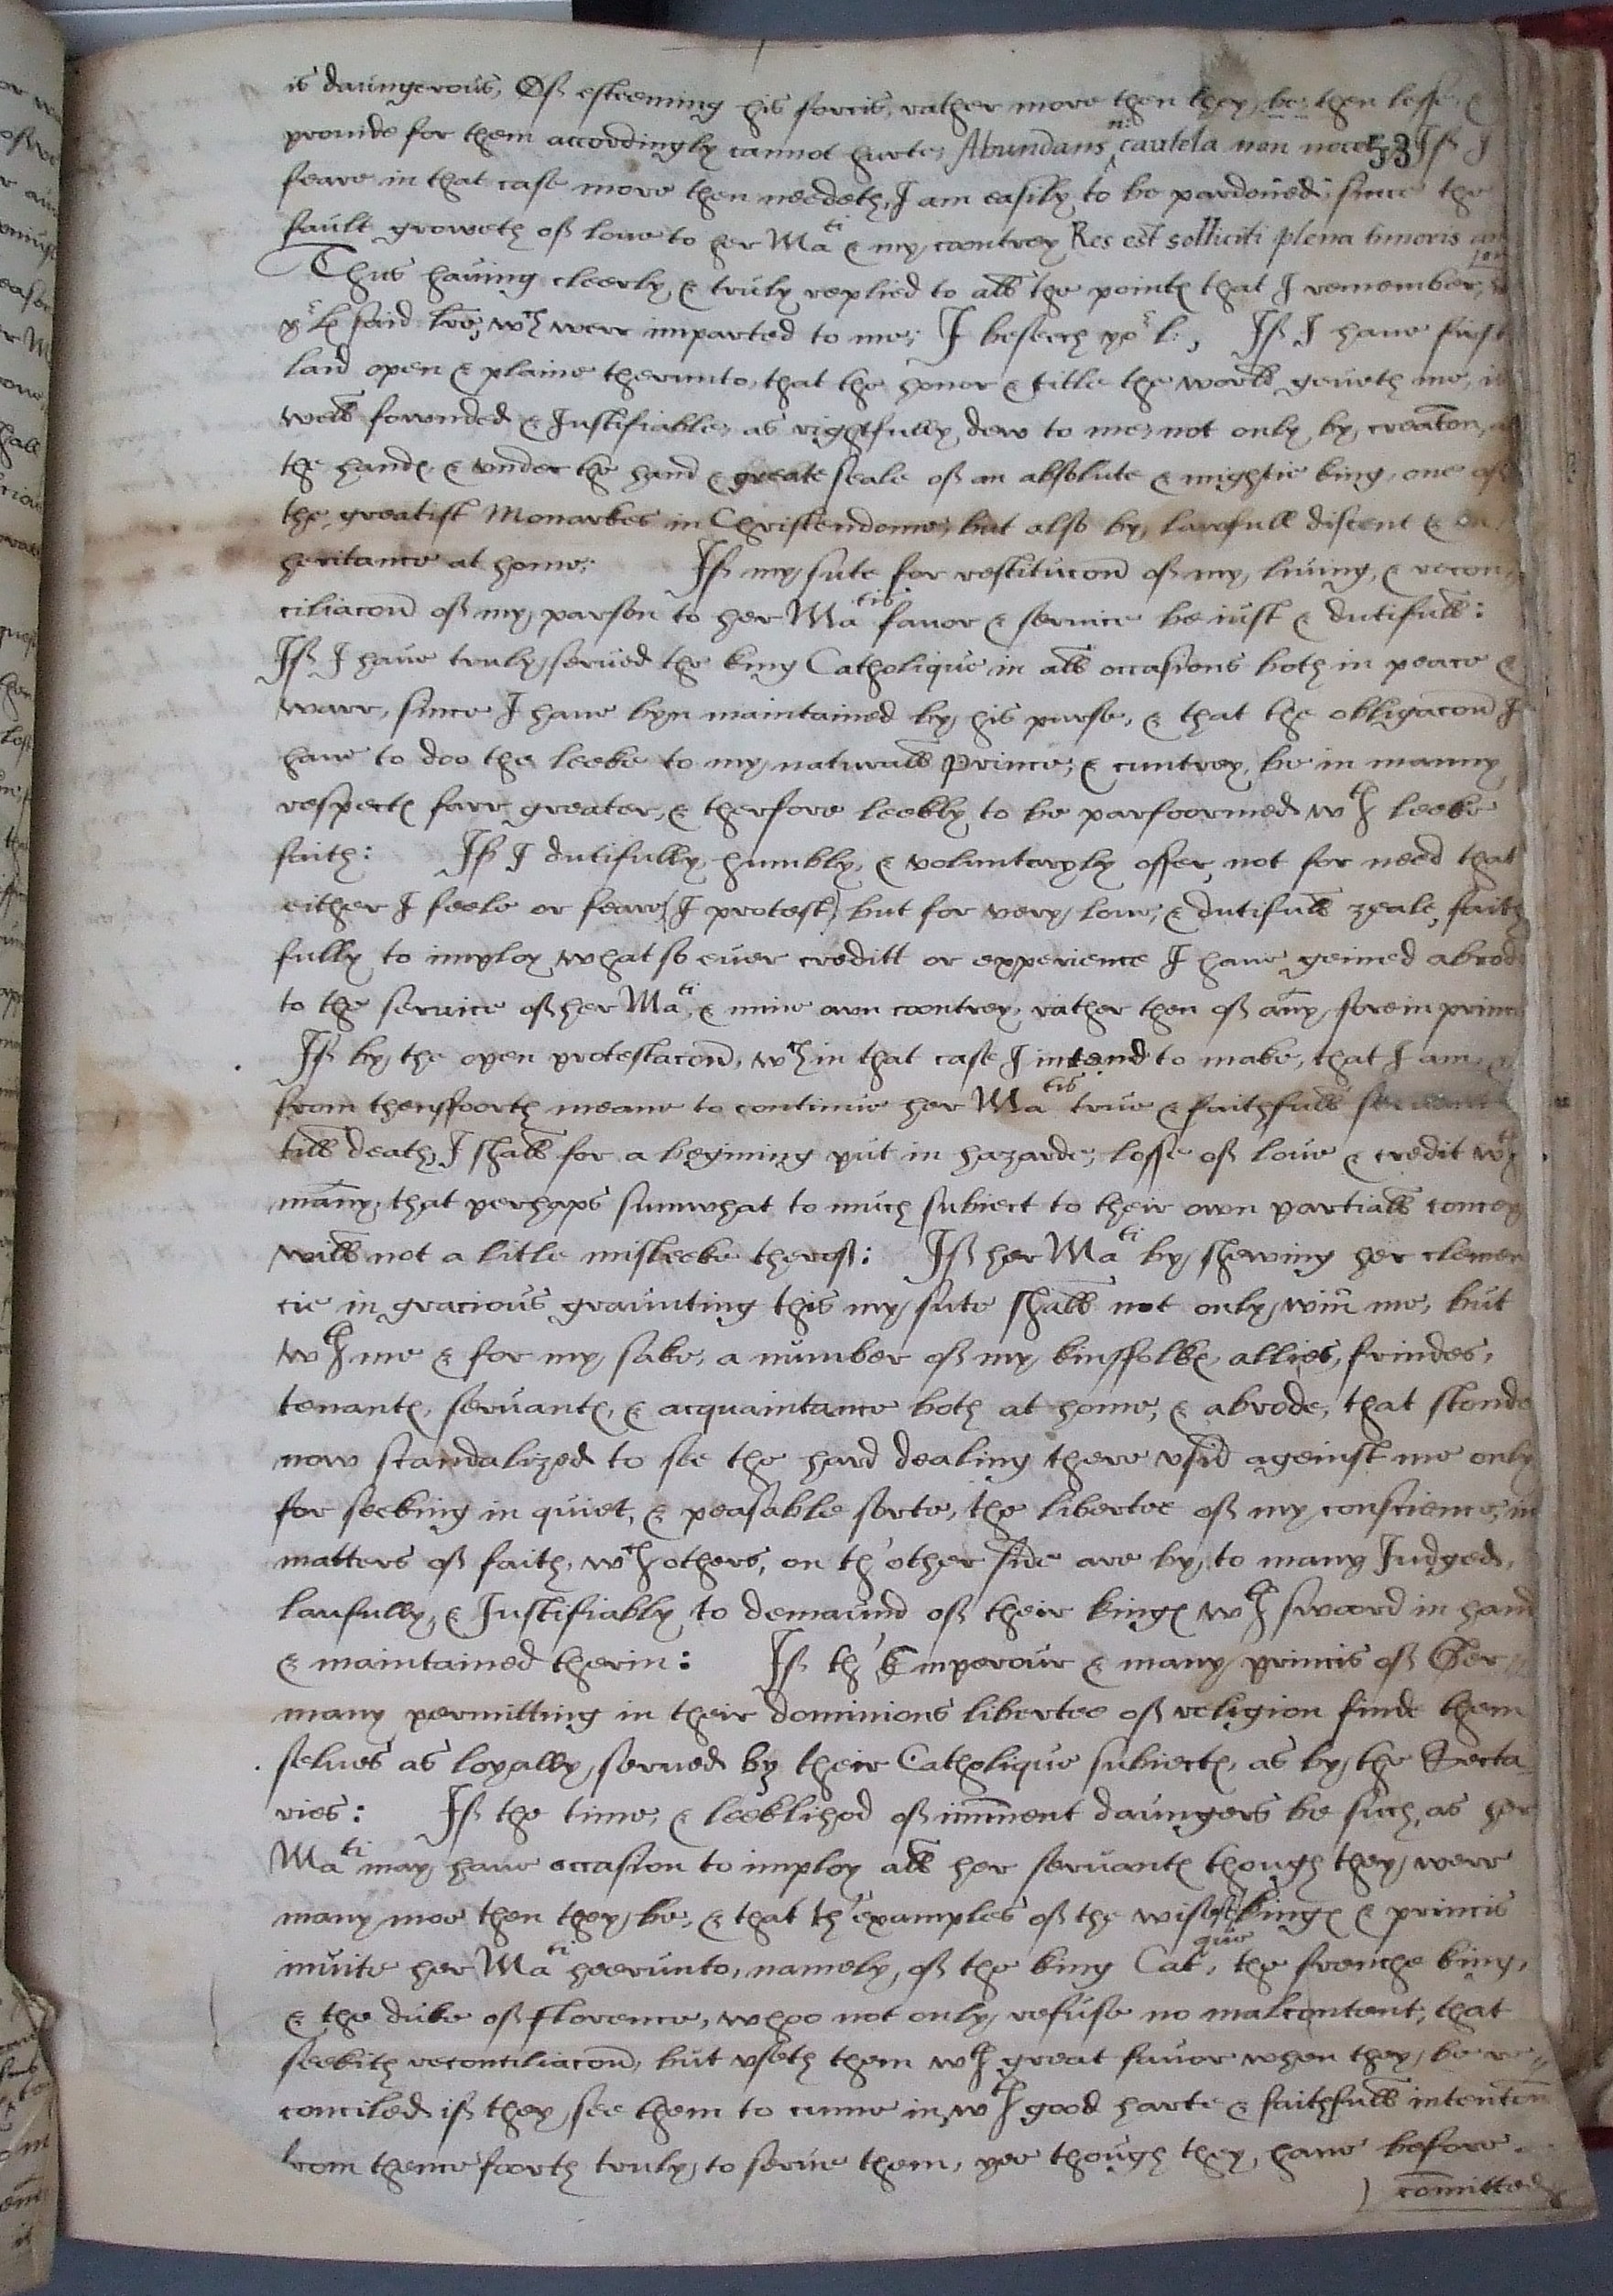 is daungerous, Of esteeming his forcis, rather more then they be, then lesse, &
prouide for them accordingly cannot hurte, Abundans cautela non nocet, 53 If I
feare in that case more then needeth, I am easily to be pardoned, since the
fault groweth of loue to her Ma^ti & my cuntrey Res est solliciti plena timoris am
Thus hauing cleerly, & truly replied to all the pointes that I remember,
yo^r lp said lre, w^ch wear imparted to me; I beseech yo^r l:, If I haue first
laid open & plaine therunto, that the honor & title the world geueth me, is
well fownded & Iustifiable, as rightfully dew to me, not only by, creaton,
the handes, & vnder the hand & greate seale of an absolute & mightie king, one of
the greatist Monarkes in Christendome, but also by, lawfull discent & en
heritance at home; If my sute for restitucon of my, liuing, & recon
ciliacon of my, parson to her Ma^tis fauor & seruice be iust & dutifull:
If I haue truly, serued the king Catholique in all occasions both in peace &
warr, since I haue byn maintained by, his purse, & that the obligacon I
haue to doo the leeke to my, naturall Prince, & cuntrey, be in manny
respectes farr greater, & therfore leekly to be parfoormed w^th leeke
faith: If I dutifully, humbly, & voluntaryly offer, not for need that
either I feele or feare (I protest) but for very, loue, & dutifull zeale, faith
fully to imploy what so euer creditt or experience I haue geined abrode
to the seruice of her Ma^ti, & mine own cuntrey, rather then of any, forein prince
If by, the open protestacon, w^ch in that case I intend to make, that I am, &
from thensfoorth meane to continue her Ma^tis true & faithfull seruant
till death, I shall for a begining put in hazarde, losse of loue & credit w^th
many, that perhaps sumwhat to much subiect to their own partiall
will not a litle misleeke therof: If her Ma^ti by, shewing her clemen
cie in gracious graunting this my, sute shall not only, winn me, but
w^th me & for my, sake, a number of my, kinsfolkes, allies, frindes,
tenantes, seruantes, & acquaintance both at home, & abrode, that stonde
now scandalized to see the hard dealing there vsid ageinst me only
for seeking in quiet, & peasable sorte, the libertee of my, conscience, in
matters of faith, w^ch others, on th'other side are by, to many Iudged,
laufully, & Iustifiably to demaund of their kinges w^th sword in hand
& maintained therin: If th'Emperour & many, princis of Ger
many permitting in their dominions libertee of religion finde them
selues as loyally, serued by their Catholique subiectes, as by, the Secta
ries: If the time, & leeklihod of imminent daungers be such, as her
Ma^ti may, haue occasion to imploy all her seruantes though they, were
many moe then they, be, & that th'examples of the wisest kinges & princis
inuite her Ma^ti heerunto, namely, of the king Cat^que, the frenche king,
& the duke of florence, whoo not only, refuse no malcontent, that
seekith reconciliacon, but vseth them w^th great fauor when they, be re
conciled, if they, see them to cume in, w^th good harte & faithfull intenton
from thence foorth truly, to serue them, yee though they, haue before
committed